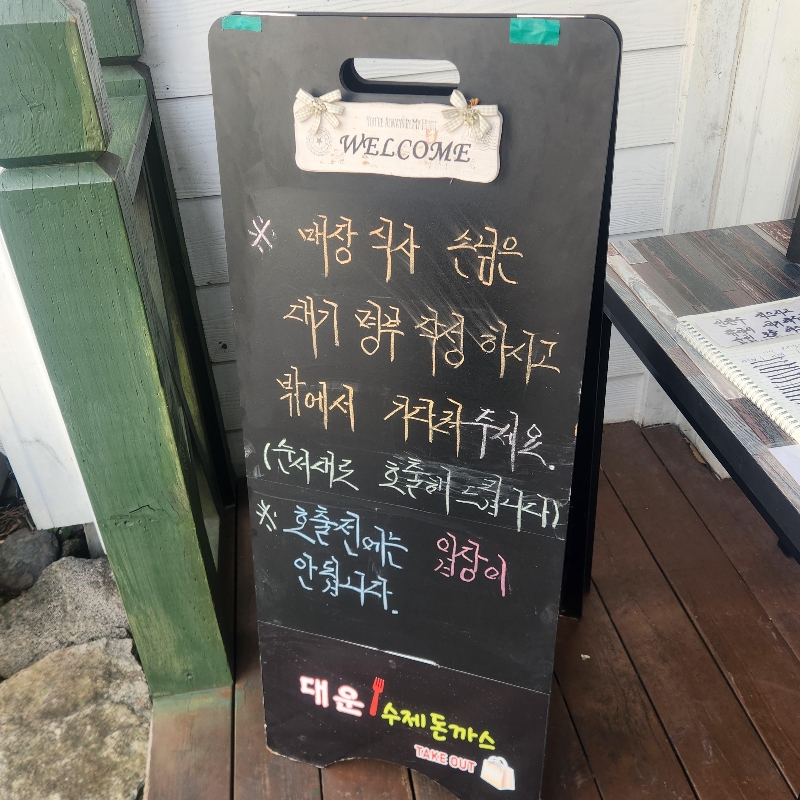 WELCOME
※ 매장 식사 손님은
대기 명부 작성 하시고
밖에서 기다려 주세요.
(순서대로 호출해 드립니다)
※ 호출전에는 입장이
안됩니다.
대운
수제돈까스
TAKE OUT